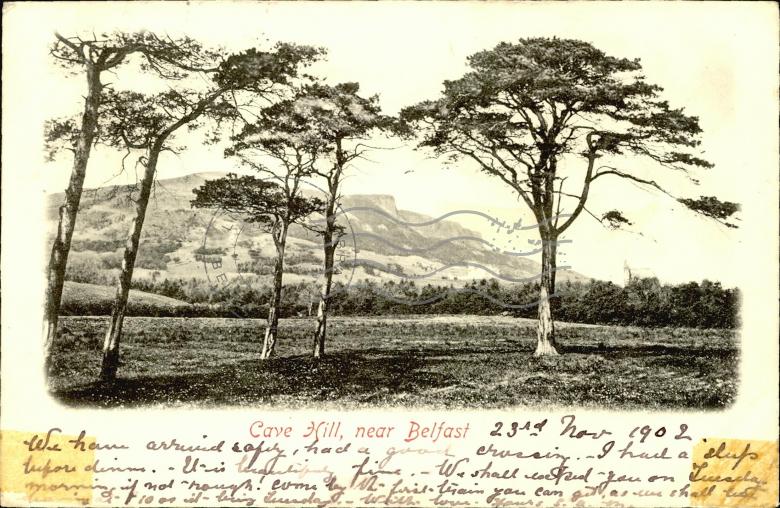 Cave Hill, near Belfast 23rd Nov 1902
We have arrived safely, had a good crossing. - I had a sleep
before dinner. - It is beautifully fine. - We shall expect you on Tuesday
morning, if not rough. come by the first train you can get, as we shall not
10 as it being Tuesday. - With love. Yours